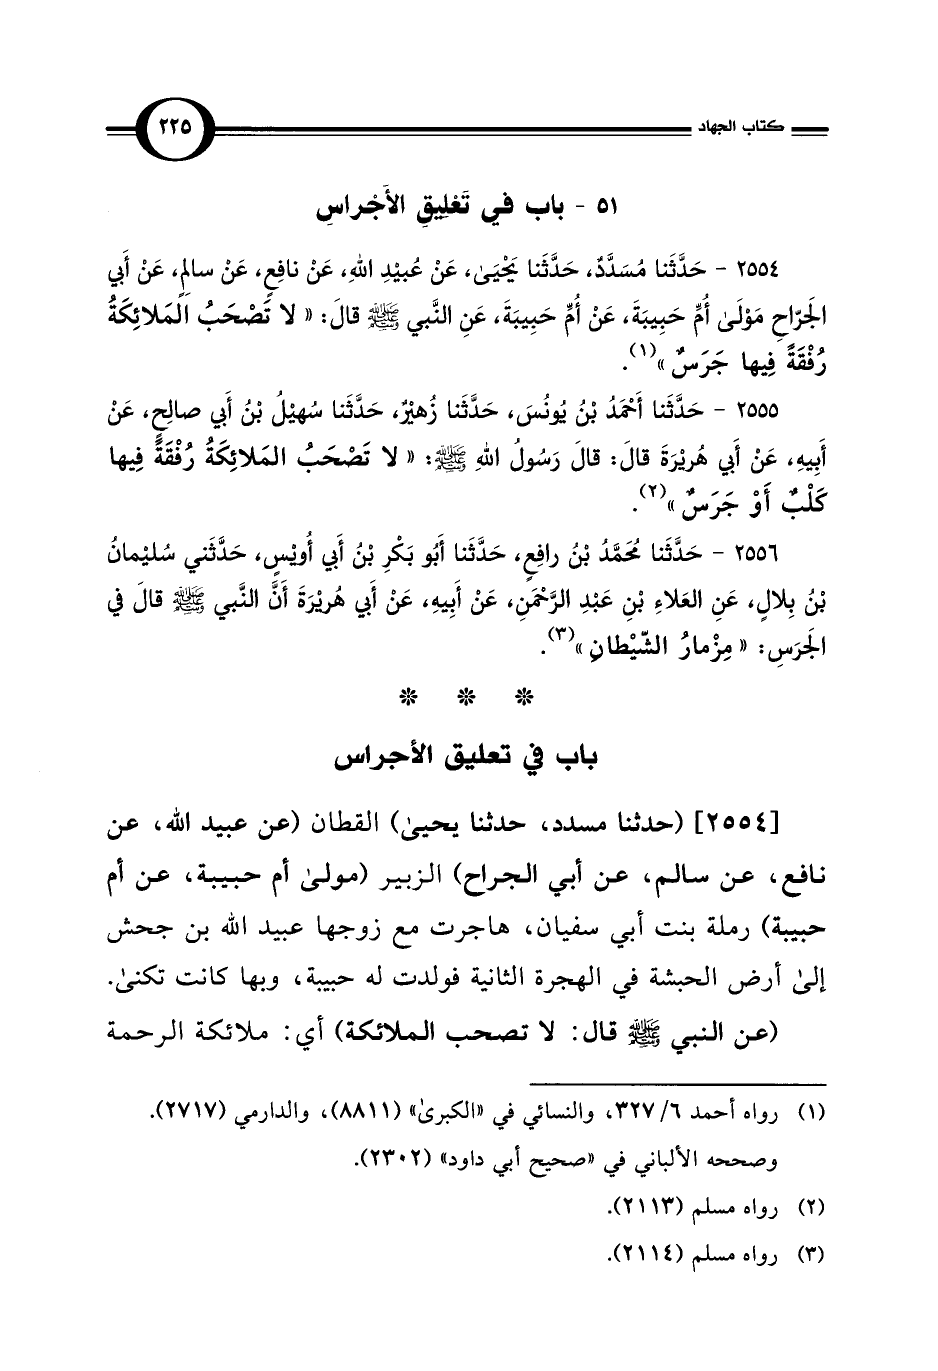 كتاب الجهاد ٢٢٥
٥١ - باب في تَعْلِيقِ الأَجْراسِ
٢٥٥٤ - حَدَّثَنا مُسَدَّدٌ، حَدَّثَنا يَحْيَىٰ، عَنْ عُبيْدِ اللهِ، عَنْ نافِعٍ، عَنْ سالِمٍ، عَنْ أَبي
الجَرّاحِ مَوْلَىٰ أُمِّ حَبِيبَةَ، عَنْ أُمِّ حَبِيبَةَ، عَنِ النَّبي ﷺ قالَ: « لا تَصْحَبُ المَلائِكَةُ
رُفْقَةً فِيها جَرَسٌ »(١).
٢٥٥٥ - حَدَّثَنا أَحْمَدُ بْنُ يُونُسَ، حَدَّثَنا زُهيْرٌ، حَدَّثَنا سُهيْلُ بْنُ أَبي صالِحٍ، عَنْ
أَبِيهِ، عَنْ أَبي هُريْرَةَ قالَ: قالَ رَسُولُ اللهِ ﷺ: « لا تَصْحَبُ المَلائِكَةُ رُفْقَةً فِيها
كَلْبٌ أَوْ جَرَسٌ »(٢).
٢٥٥٦ - حَدَّثَنا مُحَمَّدُ بْنُ رافِعٍ، حَدَّثَنا أَبُو بَكْرِ بْنُ أَبي أُويْسٍ، حَدَّثَني سُليْمانُ
بْنُ بِلالٍ، عَنِ العَلاءِ بْنِ عَبْدِ الرَّحْمَنِ، عَنْ أَبِيهِ، عَنْ أَبي هُريْرَةَ أَنَّ النَّبي ﷺ قالَ في
الجَرَسِ: « مِزْمارُ الشّيْطانِ »(٣).
* * *
باب في تعليق الأجراس
[٢٥٥٤] (حدثنا مسدد، حدثنا يحيىٰ) القطان (عن عبيد الله، عن
نافع، عن سالم، عن أبي الجراح) الزبير (مولىٰ أم حبيبة، عن أم
حبيبة) رملة بنت أبي سفيان، هاجرت مع زوجها عبيد الله بن جحش
إلىٰ أرض الحبشة في الهجرة الثانية فولدت له حبيبة، وبها كانت تكنىٰ.
(عن النبي ﷺ قال: لا تصحب الملائكة) أي: ملائكة الرحمة
(١) رواه أحمد ٦/ ٣٢٧، والنسائي في «الكبرىٰ» (٨٨١١)، والدارمي (٢٧١٧).
وصححه الألباني في «صحيح أبي داود» (٢٣٠٢).
(٢) رواه مسلم (٢١١٣).
(٣) رواه مسلم (٢١١٤).